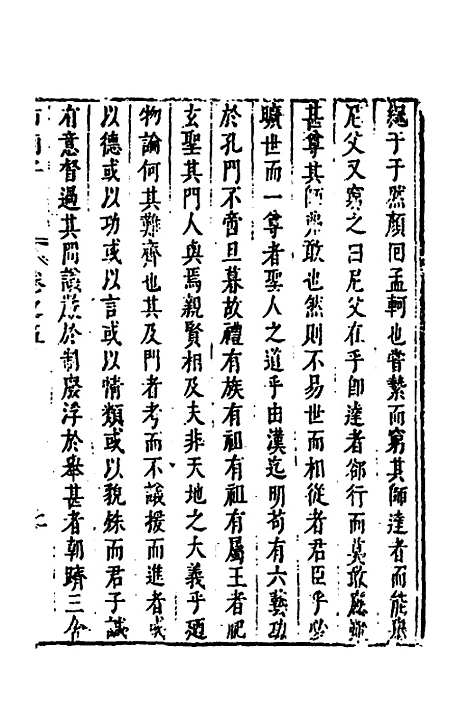 于于然顏回孟軻也嘗繫而窮其師達者而能
尼父又窮之曰尼父在乎卽達者卻行而莫敢應
甚尊其師弗敢也然則不易世而相從者君臣乎
曠世而一尊者聖人之道乎由漢迄明苟有六藝功
於孔門不啻旦暮故禮有族有祖有祖有屬王者
玄聖其門人與焉親賢相及夫非天地之大義乎
物論何其難齊也其及門者考而不議援而進者或
以德或以功或以言或以情類或以貌餙而君子議
有意督過其間議於制廢浮於舉甚者朝躋三
卷之五